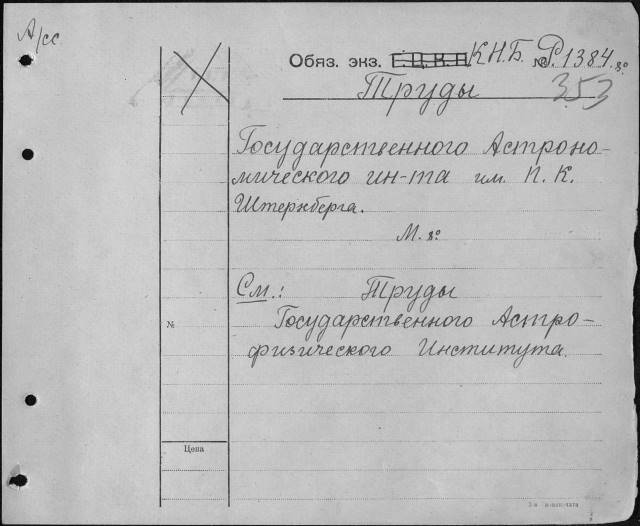 А/сс
Обяз. экз. Г.Ц.К.П. К.Н.Б. № Р.1384. 8°
Труды 353
Государственного Астроно-
мического ин-та им. П. К.
Штернберга.
М. 8°
См.: Труды
№ Государственного Астро-
физического Института.
Цена